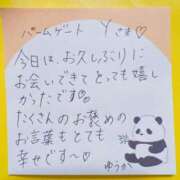 パームゲート Yさま♡
今日は、お久しぶりに
お会いできてとっても嬉し
かったです
たくさんのお褒めの
お言葉もとても
幸せです〜♡
ゆうか